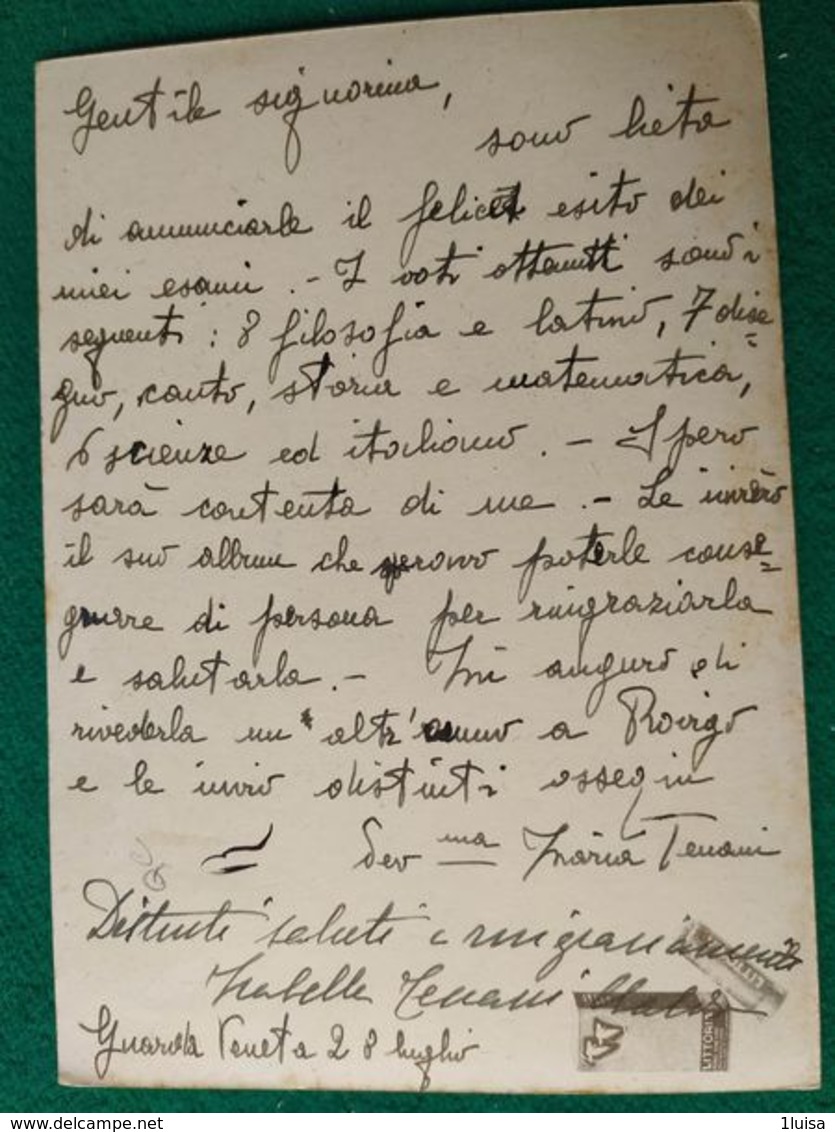 Gentile signorina,
sono lieta
di annunciarle il felice esito dei
miei esami. - I voti ottenuti sono i
seguenti: 8 filosofia e latino, 7 dise=
gno, canto, storia e matematica,
6 scienze ed italiano. - Spero
sarà contenta di me. - Le invierò
il suo album che speravo poterle conse=
gnare di persona per ringraziarla
e salutarla. - Mi auguro di
rivederla un altr'anno a Rovigo
e le invio distinti ossequi
dev ma Maria Tenani
Distinti saluti e ringraziamenti
Isabella Tenani
Guarda Veneta 28 luglio
LITTORI
1luisa